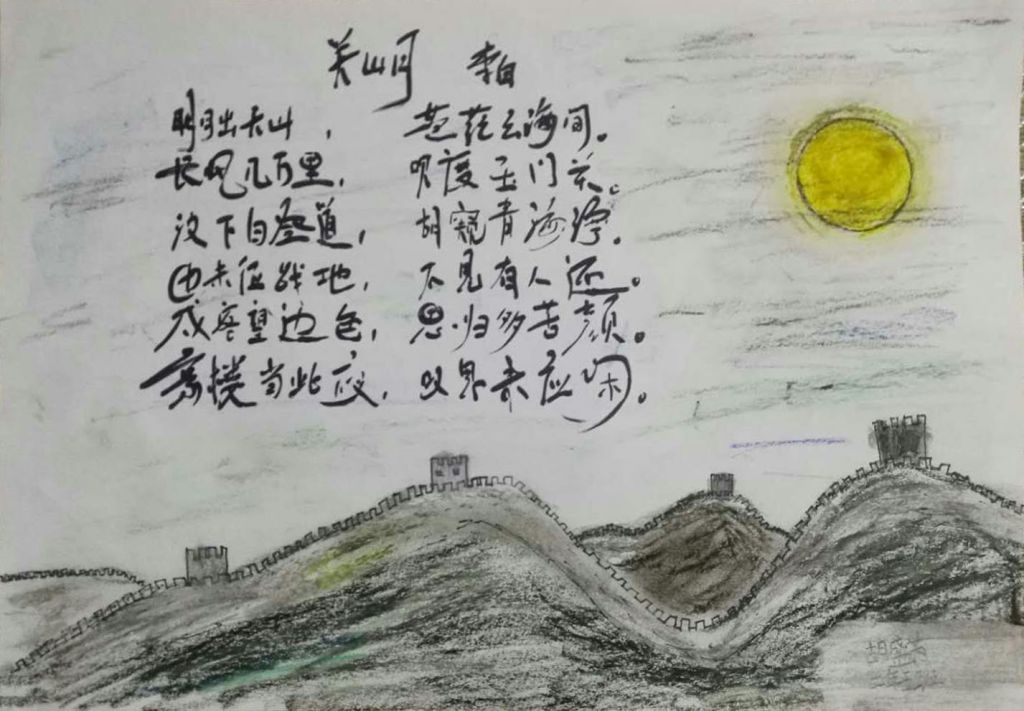 关山月 李白
明月出天山，苍茫云海间。
长风几万里，吹度玉门关。
汉下白登道，胡窥青海湾。
由来征战地，不见有人还。
戍客望边色，思归多苦颜。
高楼当此夜，叹息未应闲。